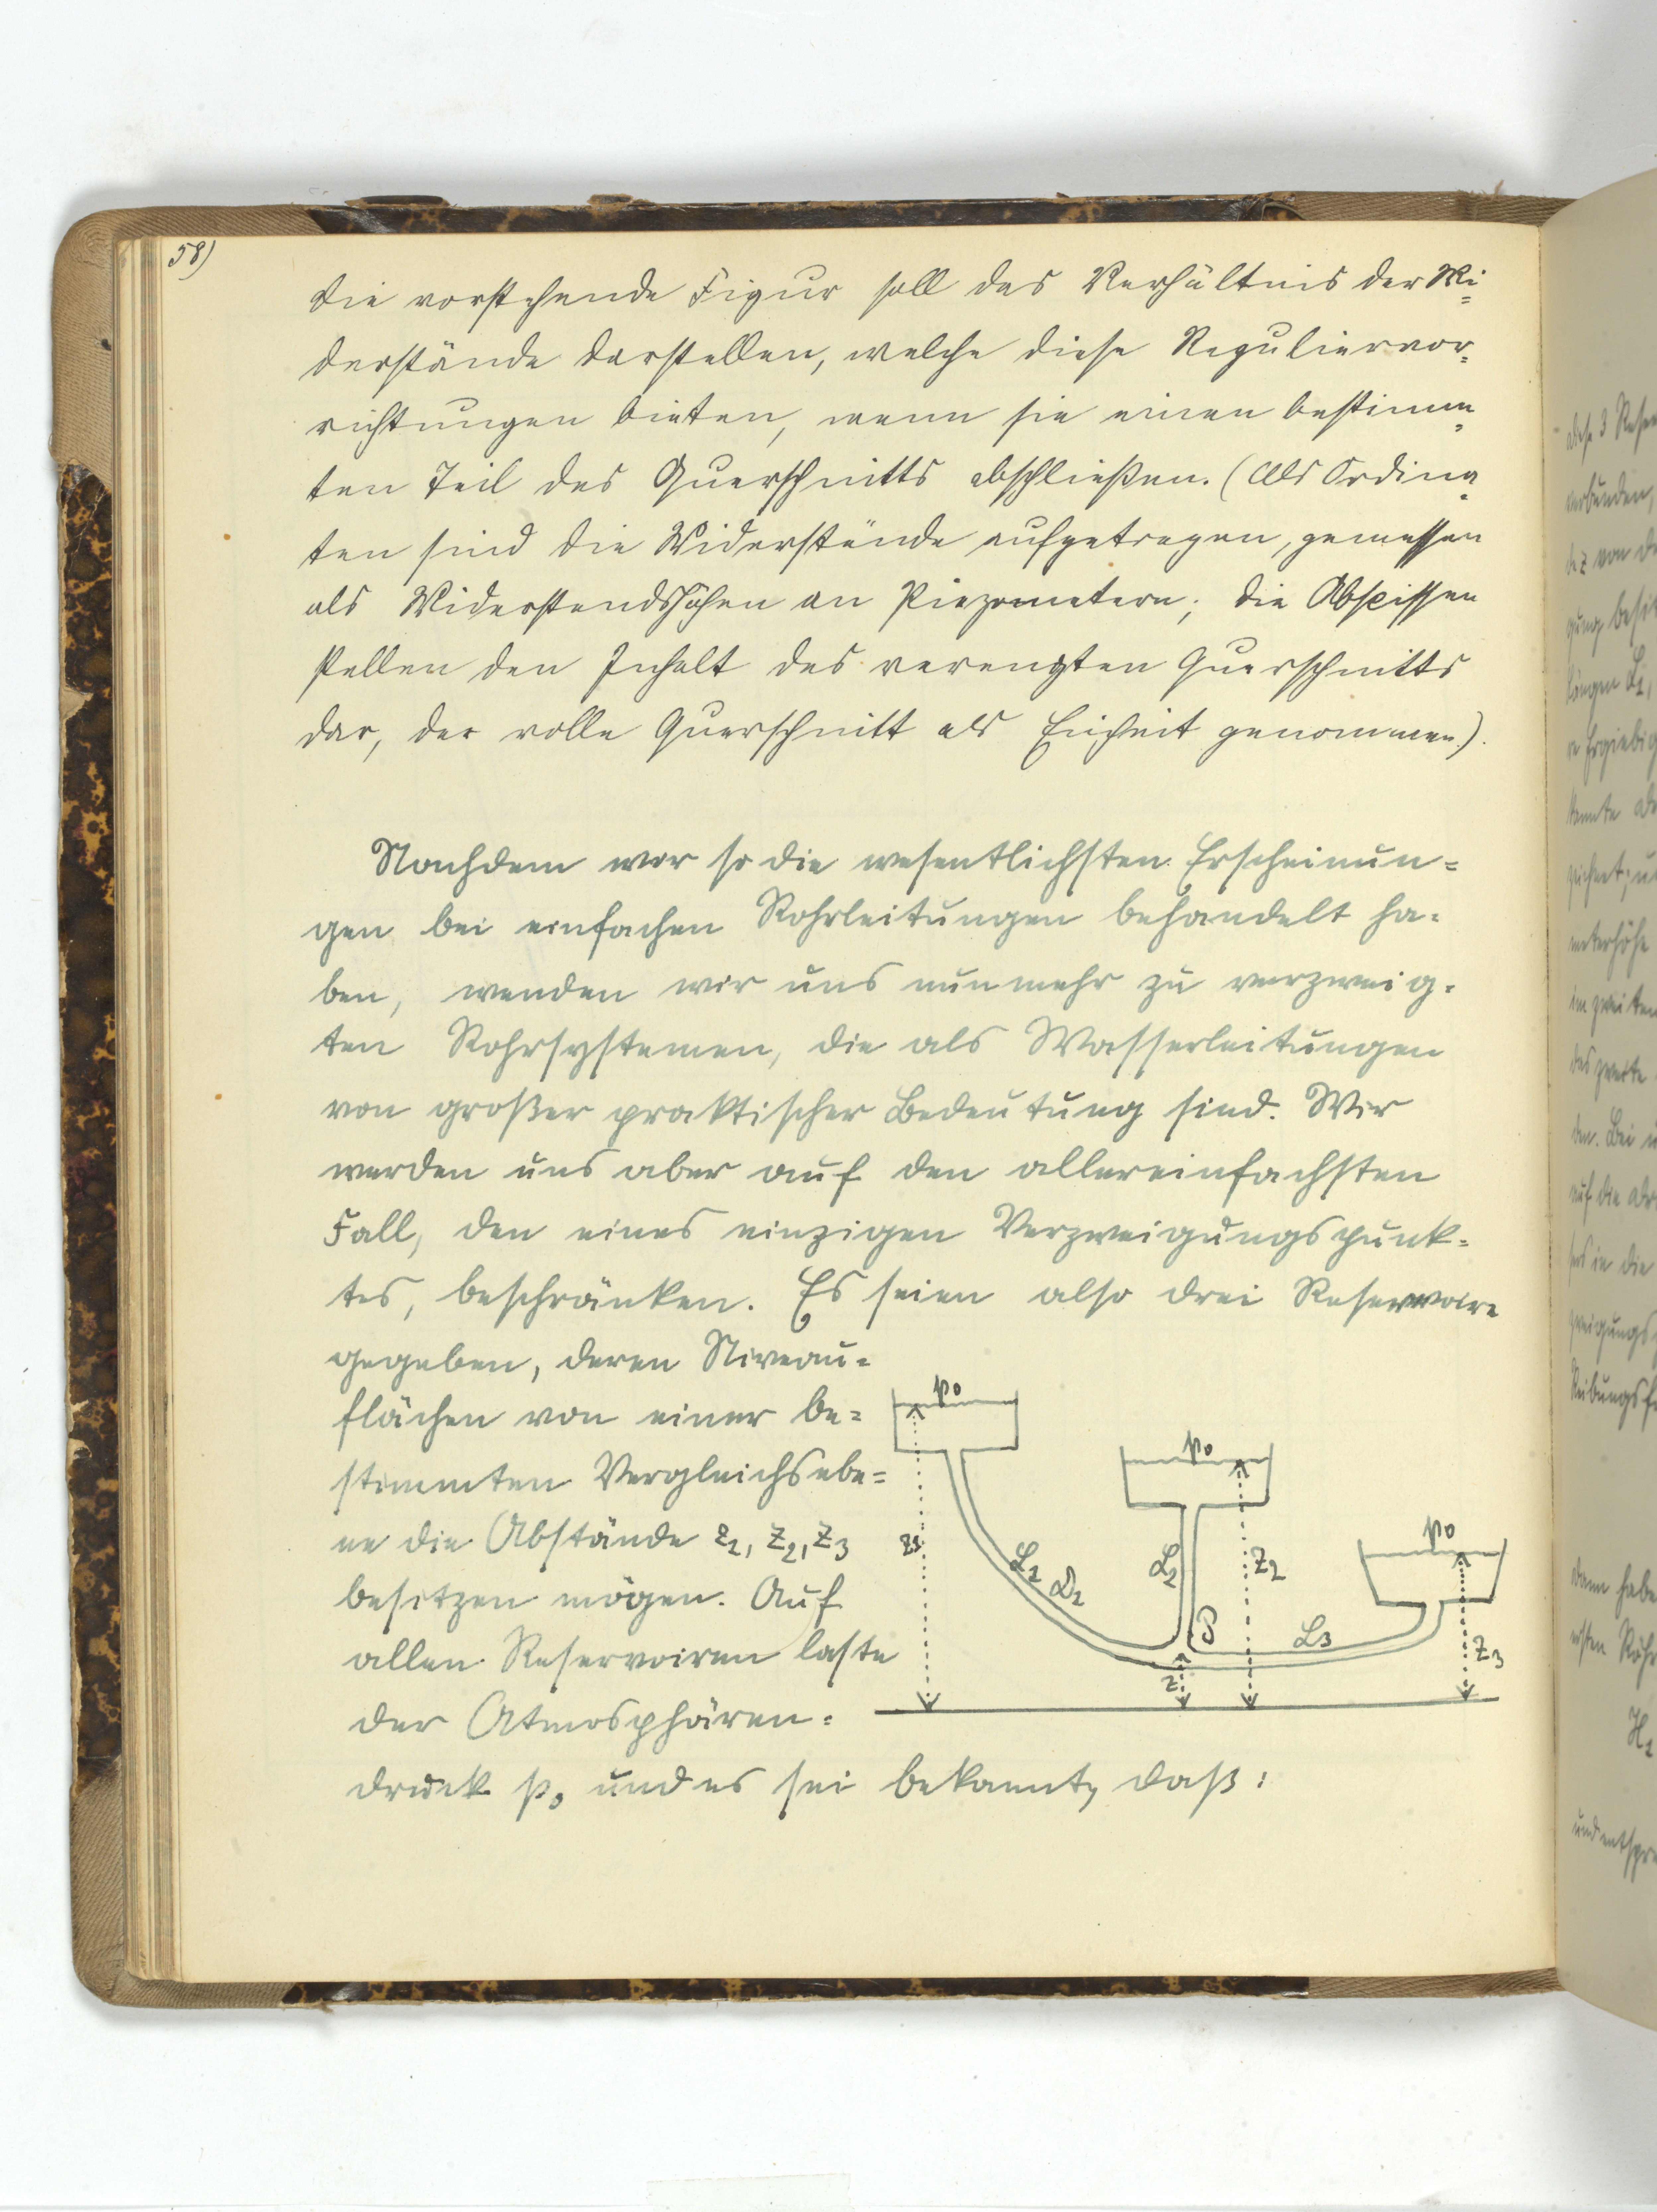 58)
Die vorstehende Figur soll das Verhältnis der Wi=
derstände darstellen, welche diese Reguliervor=
richtungen bieten, wenn sie einen bestimm=
ten Teil des Querschnitts abschließen. (Als Ordina=
ten sind die Widerstände aufgetragen, gemessen
als Widerstandshöhen an Piezometern; die Abscissen
stellen den Inhalt des verengten Querschnitts
dar, der volle Querschnitt als Einheit genommen).
Nachdem wir so die wesentlichsten Erscheinun=
gen bei einfachen Rohrleitungen behandelt ha=
ben, wenden wir uns nunmehr zu verzweig=
ten Rohrsystemen, die als Wasserleitungen
von großer praktischer Bedeutung sind. Wir
werden uns aber auf den allereinfachsten
Fall, den eines einzigen Verzweigungspunk=
tes, beschränken. Es seien also drei Reservoire
gegeben, deren Niveau=
flächen von einer be=
stimmten Vergleichsebe=
ne die Abstände z1, z2, z3
besitzen mögen. Auf
allen Reservoiren laste
der Atmosphären=
druck p0 und es sei bekannt, daß:
p0
p0
p0
z1
L1 D1
L2
z2
P
L3
z
z3